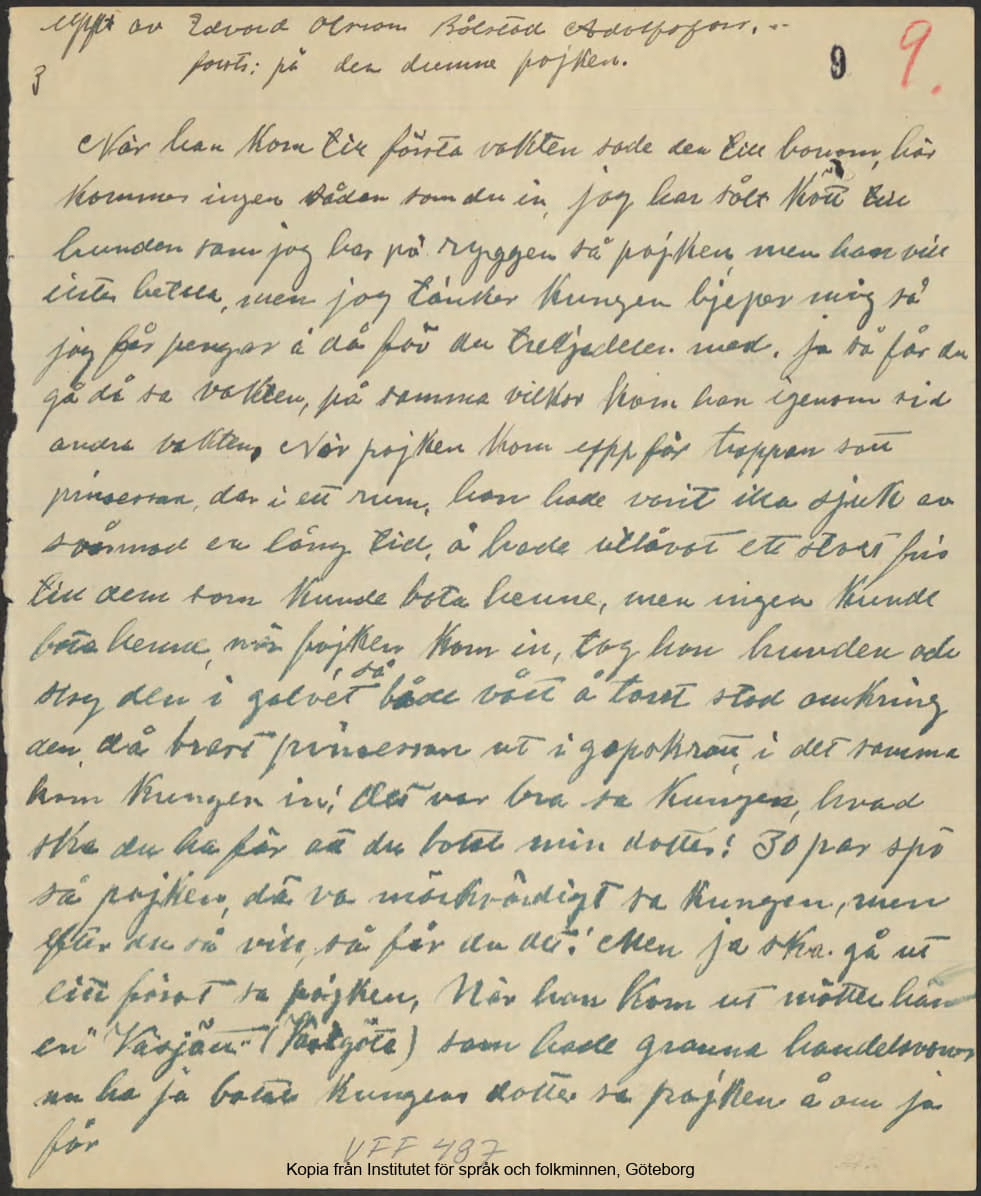 uppt av Edvard Olsson Bålstad Adolfsfors. --
forts: på den dumme pojken.
3
9
9.
När han kom till första vakten sade den till honom, här
kommer ingen sådan som du in, jag har sålt kött till
hunden som jag har på ryggen så pojken, men han vill
inte betala, men jag tänker kungen hjeper mig så
jag får pengar å då får du tredjedelen med. ja så får du
gå då sa vakten, på samma vilkor kom han igenom vid
andra vakten, När pojken kom upp för trappan satt
prinsessan, där i ett rum, hon hade varit illa sjuk av
svårmod en lång tid, å hade utlåvat ett stort pris
till dem som kunde bota henne, men ingen kunde
bota henne, när pojken kom in, tog han hunden och
slog den i golvet så både vått å tort stod omkring
den, då brast prinsessan ut i gapskratt, i det samma
kom kungen in! det var bra sa kungen, hvad
ska du ha för att du botat min dotter! 30 par spö
så pojken, dä va märkvärdigt sa kungen, men
efter du så vill, så får du det! Men ja ska gå ut
litt först sa pojken, När han kom ut mötte han
en "Väsjöut" (Västgöte) som hade granna handelsvaror
nu ha ja botat kungens dotter sa pojken å om ja
får
VFF 487
Kopia från Institutet för språk och folkminnen, Göteborg